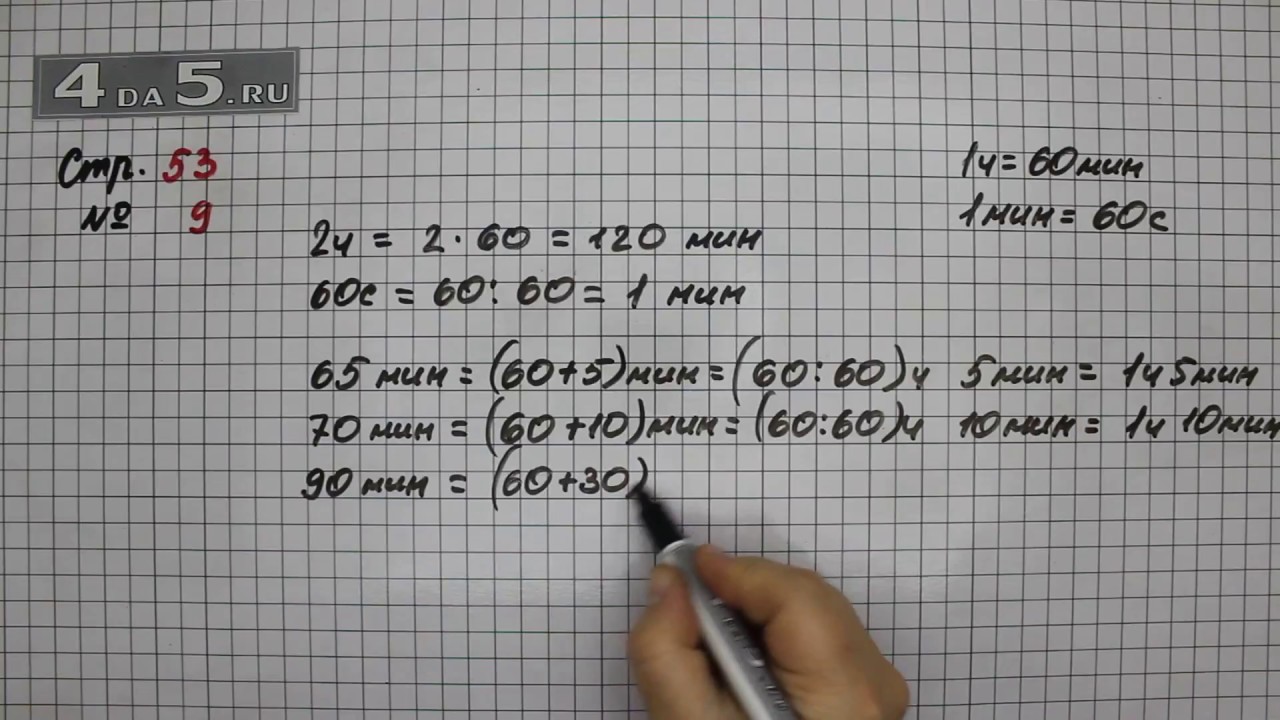 4 DA 5.RU
Стр. 53
№ 9
1ч = 60 мин
1 мин = 60с
2ч = 2 · 60 = 120 мин
60с = 60 : 60 = 1 мин
65 мин = (60+5)мин = (60:60)ч 5мин = 1ч 5мин
70 мин = (60+10)мин = (60:60)ч 10мин = 1ч 10мин
90 мин = (60+30)